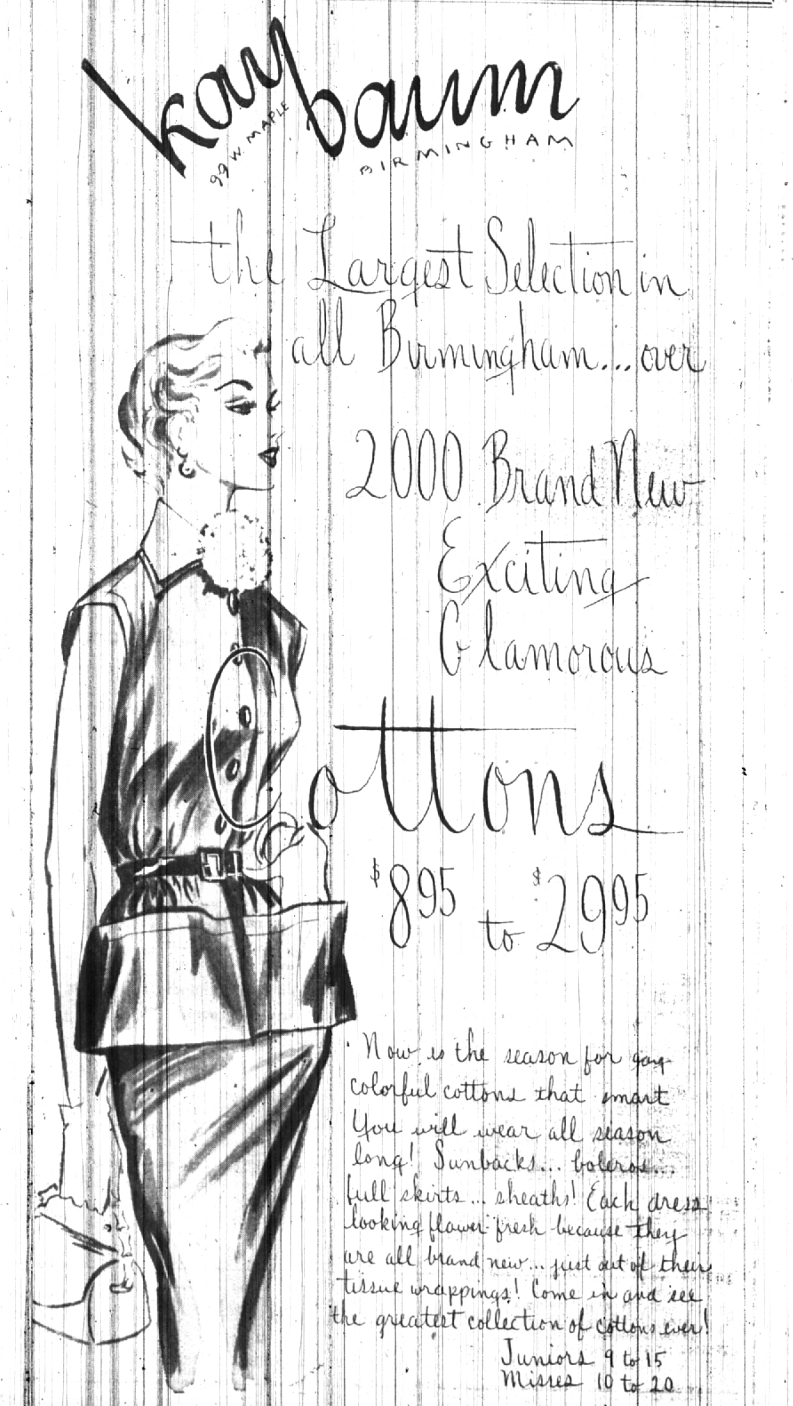 kay baum
99 W. MAPLE
BIRMINGHAM
the Largest Selection in
all Birmingham...over
2000 Brand New
Exciting
Glamorous
Cottons
$8.95 to $29.95
Now is the season for gay
colorful cottons that smart
You will wear all season
long! Sunbacks... boleros...
full skirts... sheaths! Each dress
looking flower fresh because they
are all brand new... just out of their
tissue wrappings! Come in and see
the greatest collection of cottons ever!
Juniors 9 to 15
Misses 10 to 20